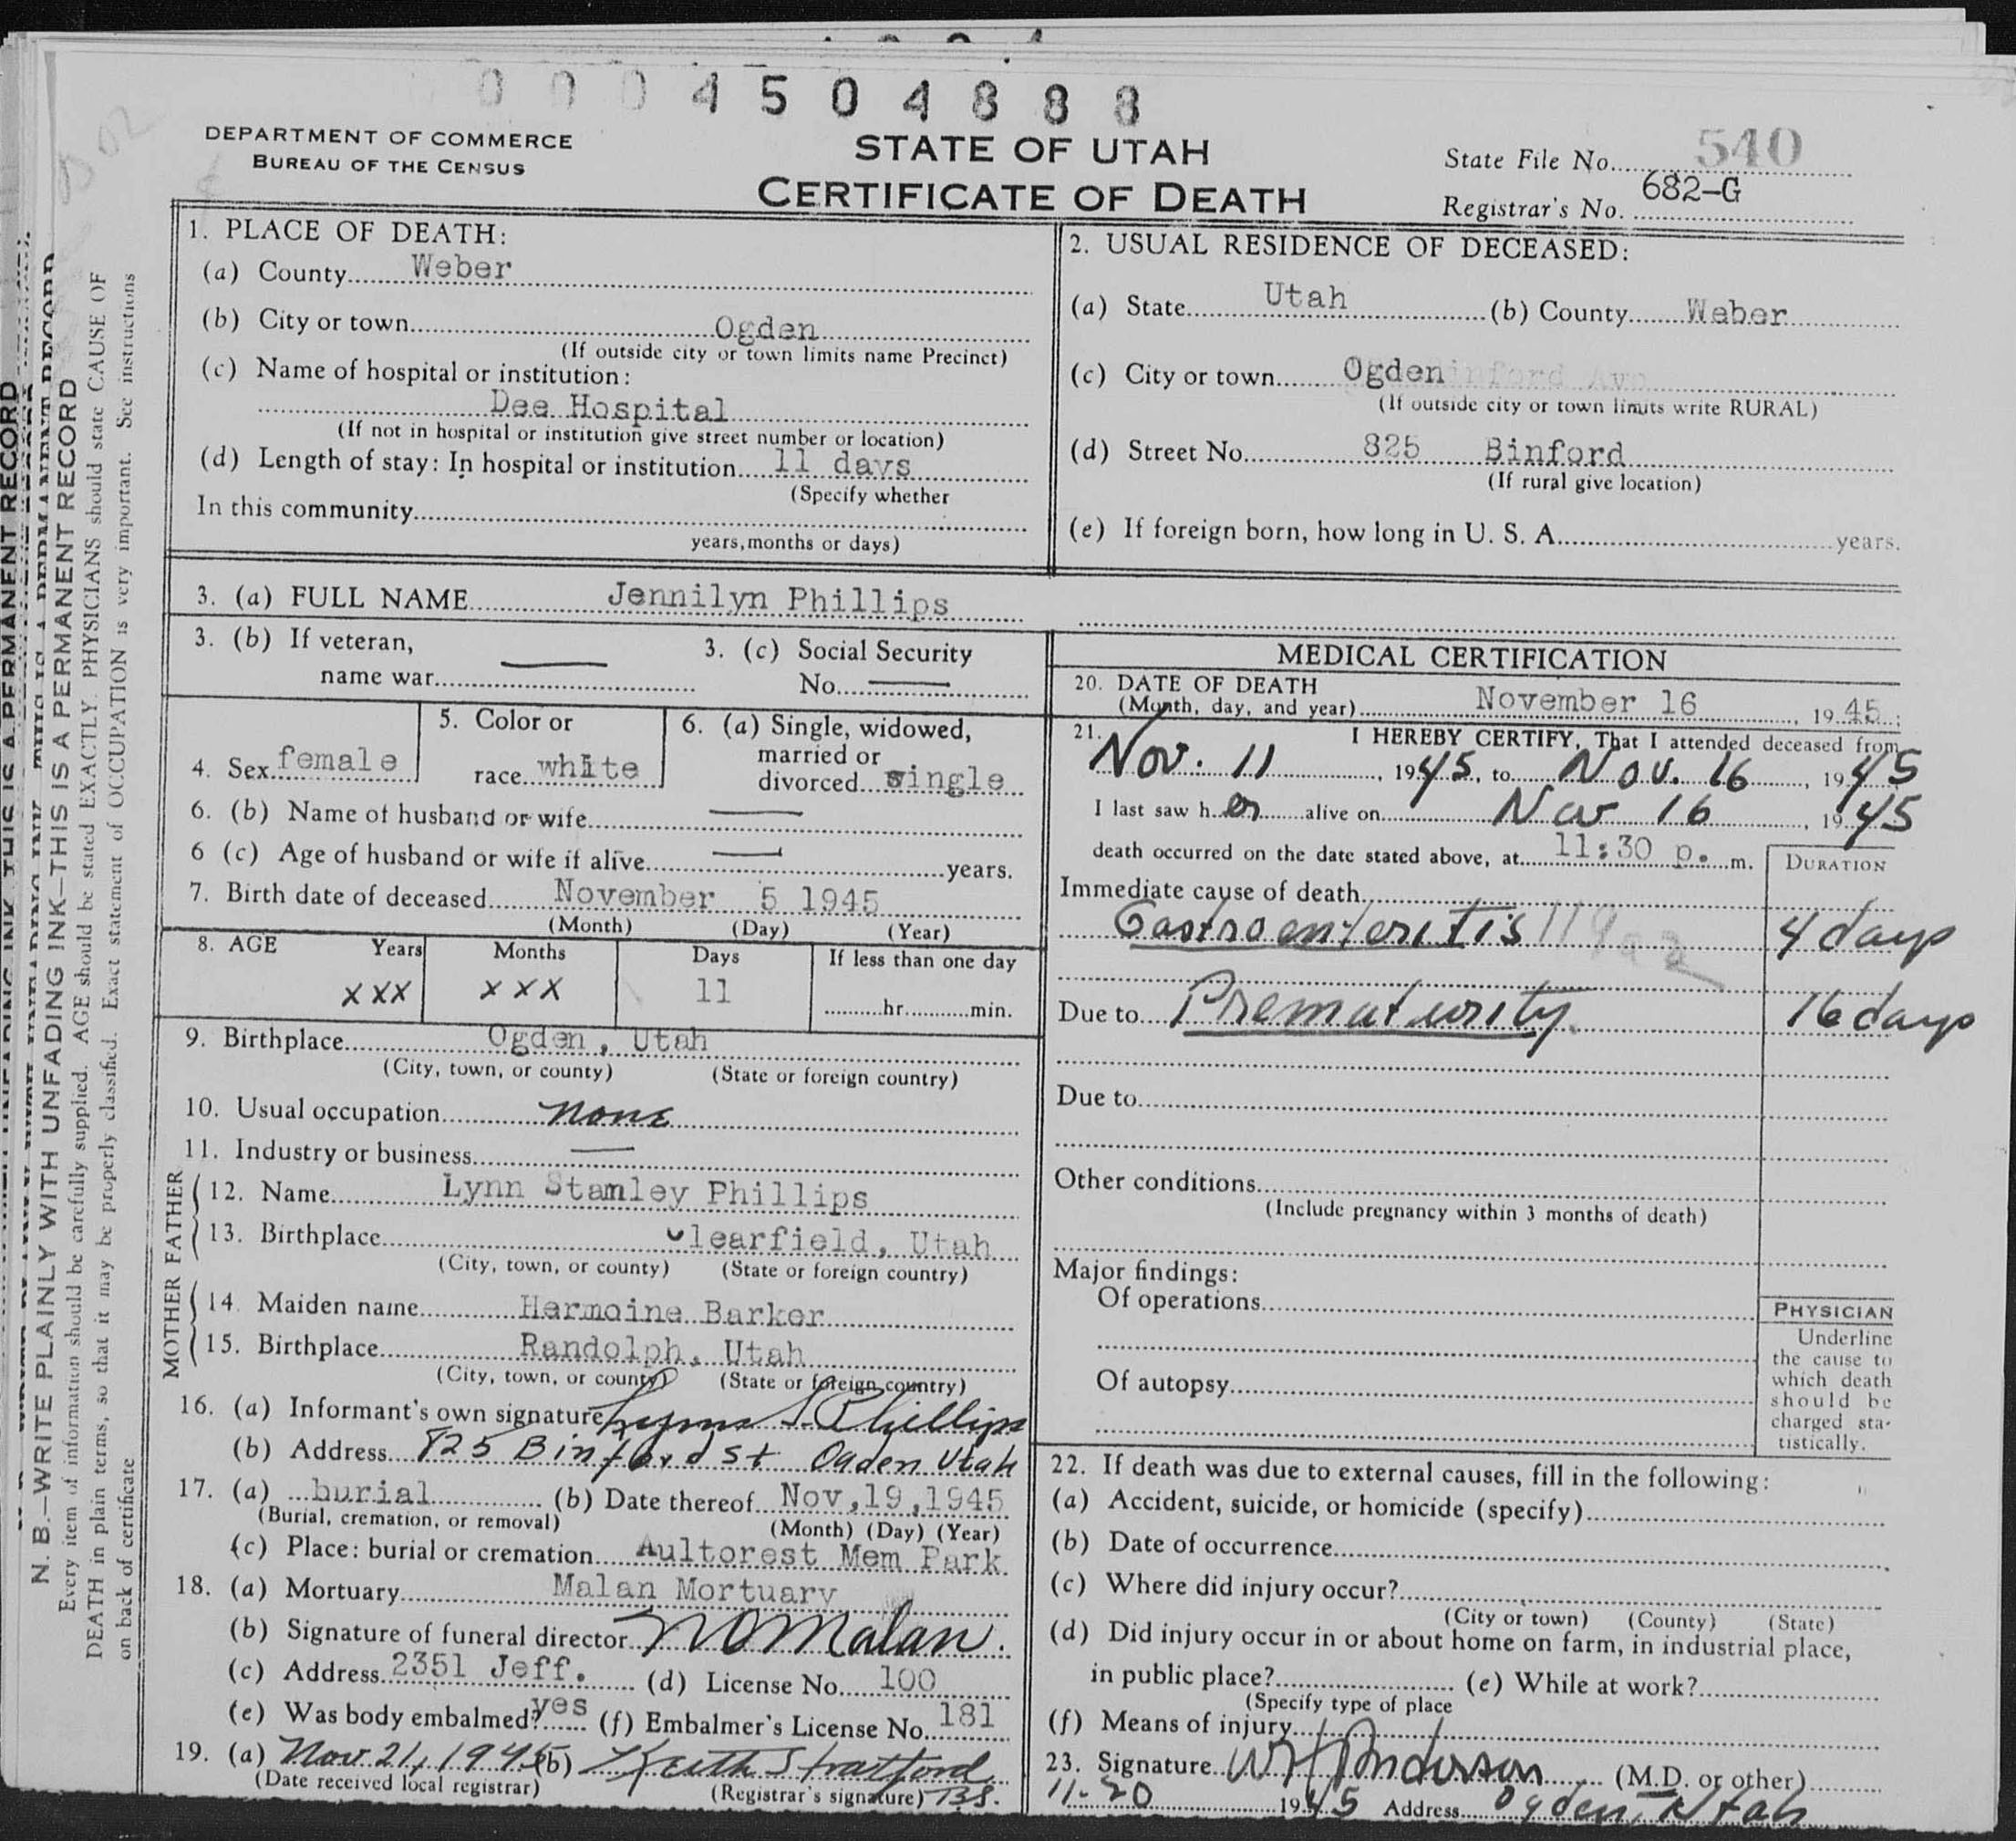 0 0 0 4 5 0 4 8 8 8
DEPARTMENT OF COMMERCE
BUREAU OF THE CENSUS
STATE OF UTAH
CERTIFICATE OF DEATH
State File No. 540
Registrar's No. 682-G
1. PLACE OF DEATH:
(a) County Weber
(b) City or town Ogden
(If outside city or town limits name Precinct)
(c) Name of hospital or institution:
Dee Hospital
(If not in hospital or institution give street number or location)
(d) Length of stay: In hospital or institution 11 days
(Specify whether
In this community
years, months or days)
2. USUAL RESIDENCE OF DECEASED:
(a) State Utah (b) County Weber
(c) City or town Ogden
(If outside city or town limits write RURAL)
(d) Street No. 825 Binford
(If rural give location)
(e) If foreign born, how long in U. S. A. years.
3. (a) FULL NAME Jennilyn Phillips
3. (b) If veteran,
name war
3. (c) Social Security
No.
4. Sex female
5. Color or
race white
6. (a) Single, widowed,
married or
divorced single
6. (b) Name of husband or wife
6 (c) Age of husband or wife if alive years.
7. Birth date of deceased November 5 1945
(Month) (Day) (Year)
8. AGE Years Months Days If less than one day
XXX XXX 11 hr. min.
9. Birthplace Ogden, Utah
(City, town, or county) (State or foreign country)
10. Usual occupation none
11. Industry or business
FATHER
12. Name Lynn Stamley Phillips
13. Birthplace Clearfield, Utah
(City, town, or county) (State or foreign country)
MOTHER
14. Maiden name Hermoine Barker
15. Birthplace Randolph, Utah
(City, town, or county) (State or foreign country)
16. (a) Informant's own signature Lynn S. Phillips
(b) Address 825 Binford St Ogden Utah
17. (a) burial (b) Date thereof Nov, 19, 1945
(Burial, cremation, or removal) (Month) (Day) (Year)
(c) Place: burial or cremation Aultorest Mem Park
18. (a) Mortuary Malan Mortuary
(b) Signature of funeral director N O Malan.
(c) Address 2351 Jeff. (d) License No. 100
(e) Was body embalmed? yes (f) Embalmer's License No. 181
19. (a) Nov. 21, 1945 (b) Keith Stratford
(Date received local registrar) (Registrar's signature) BS.
MEDICAL CERTIFICATION
20. DATE OF DEATH
(Month, day, and year) November 16, 1945;
21. I HEREBY CERTIFY, That I attended deceased from
Nov. 11, 1945, to Nov. 16, 1945
I last saw her alive on Nov 16, 1945
death occurred on the date stated above, at 11:30 p. m.
DURATION
Immediate cause of death
Gastroenteritis 119a2 4 days
Due to Prematurity. 16 days
Due to
Other conditions
(Include pregnancy within 3 months of death)
Major findings:
Of operations
Of autopsy
PHYSICIAN
Underline
the cause to
which death
should be
charged sta-
tistically.
22. If death was due to external causes, fill in the following:
(a) Accident, suicide, or homicide (specify)
(b) Date of occurrence
(c) Where did injury occur?
(City or town) (County) (State)
(d) Did injury occur in or about home on farm, in industrial place,
in public place? (e) While at work?
(Specify type of place
(f) Means of injury
23. Signature W H Anderson (M.D. or other)
11-20 1945 Address Ogden, Utah
N. B.—WRITE PLAINLY WITH UNFADING INK—THIS IS A PERMANENT RECORD
Every item of information should be carefully supplied. AGE should be stated EXACTLY. PHYSICIANS should state CAUSE OF
DEATH in plain terms, so that it may be properly classified. Exact statement of OCCUPATION is very important. See instructions
on back of certificate